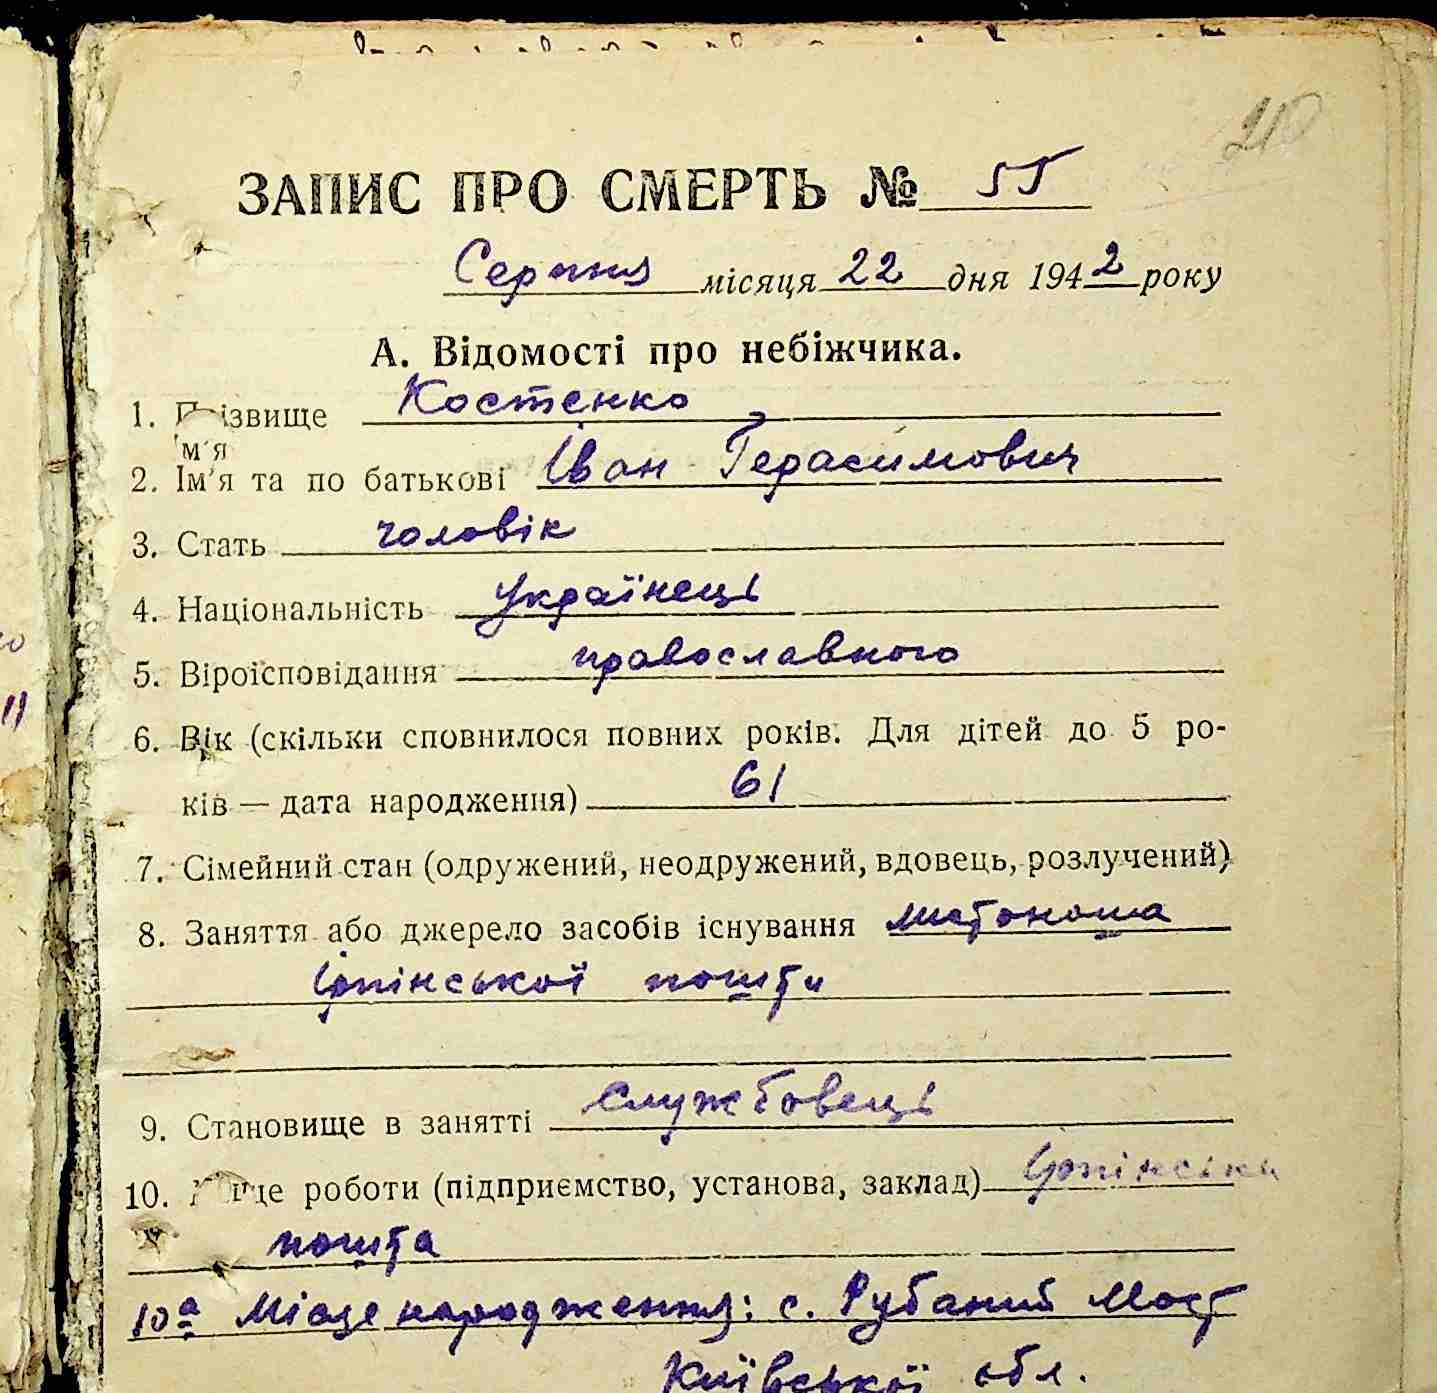 210
ЗАПИС ПРО СМЕРТЬ № 55
Серпня місяця 22 дня 1942 року
А. Відомості про небіжчика.
1. Прізвище Костенко
м'я
2. Ім'я та по батькові Іван Герасимович
3. Стать чоловік
4. Національність Українець
5. Віроісповідання православного
6. Вік (скільки сповнилося повних років. Для дітей до 5 ро-
ків — дата народження) 61
7. Сімейний стан (одружений, неодружений, вдовець, розлучений)
8. Заняття або джерело засобів існування листоноша
Ірпінської пошти
9. Становище в занятті службовець
10. Місце роботи (підприємство, установа, заклад) Ірпінська
пошта
10а Місце народження: с. Рубаний Мост
Київської обл.